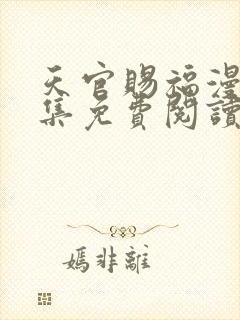 天官賜福漫
集免費閱讀
媽非離